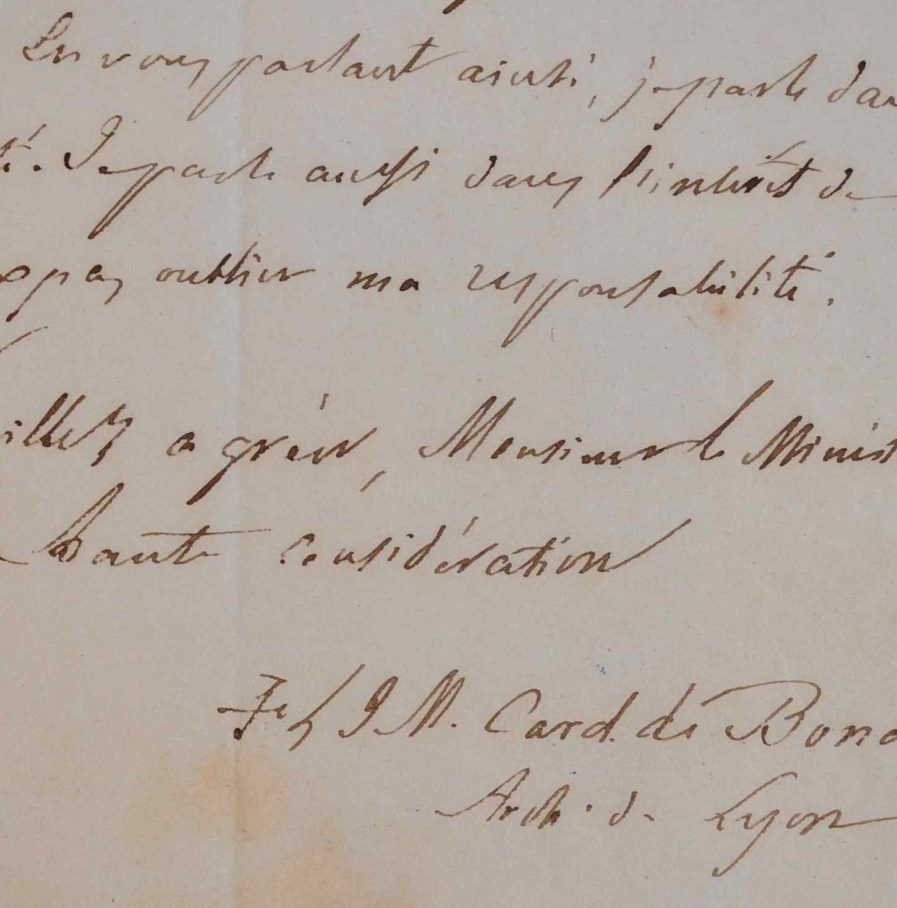 En vous parlant ainsi, je parle dan
té. Je parle aussi dans l'intérêt de
pas oublier ma responsabilité.
illez agréer, Monsieur le Minist
haute considération
L J M. Card. de Bona
Arch. de Lyon